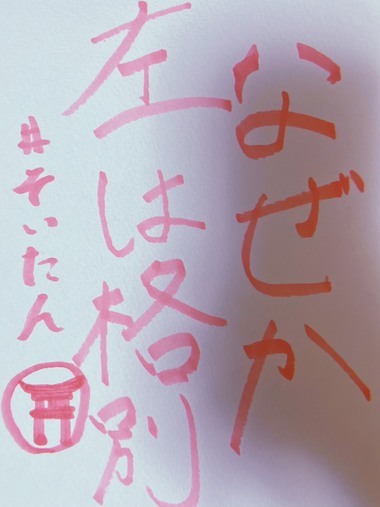 なぜか
左は格別
#そいたん